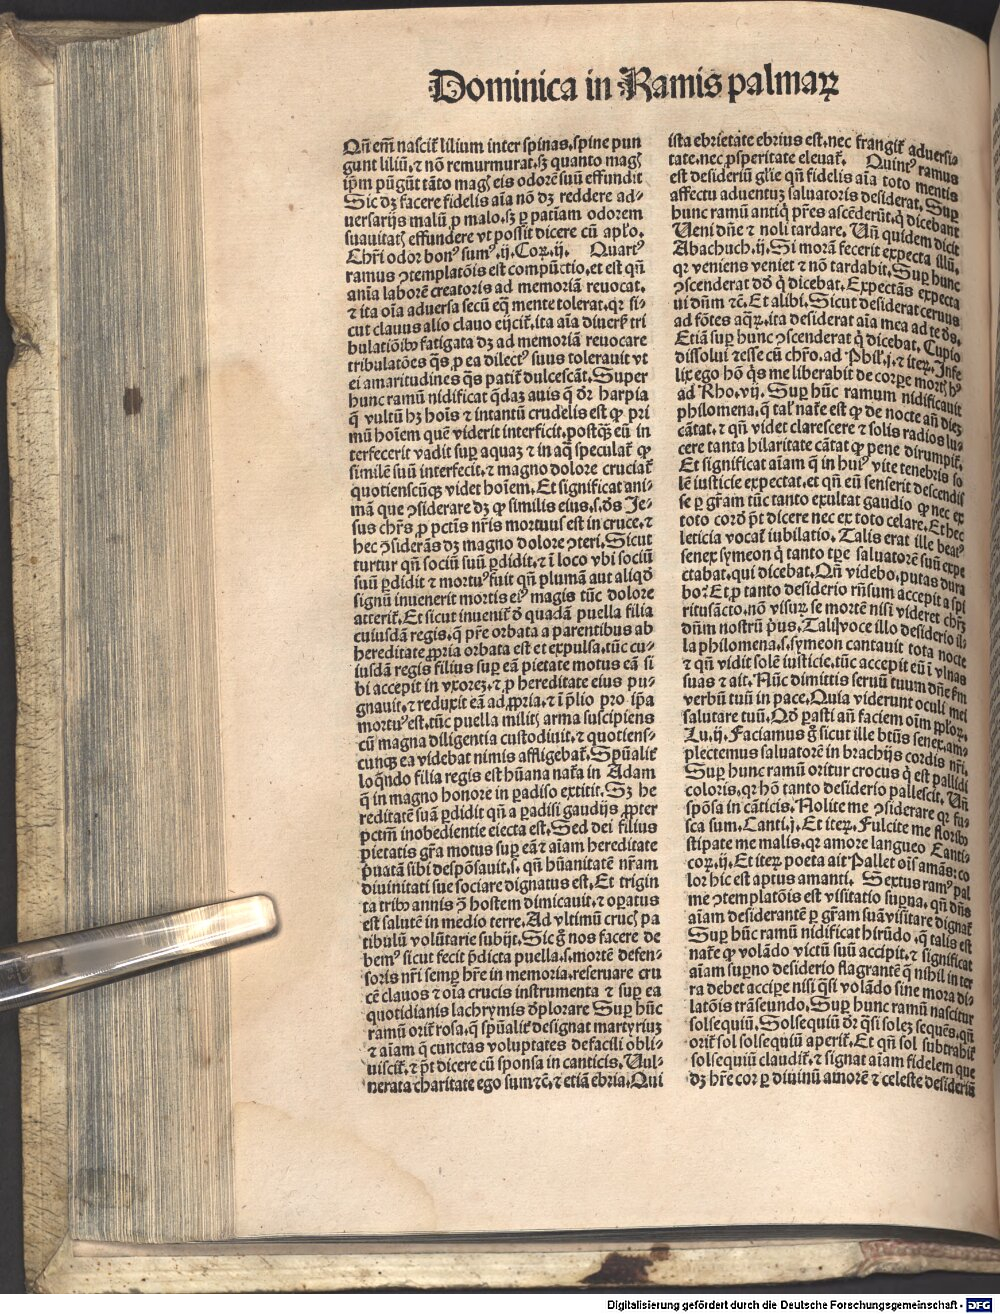 Dominica in Ramis palmaꝝ
Qn̄ em̄ nascit᷑ lilium inter spinas, spine pun
gunt liliū, ⁊ nō remurmurat, sꝫ quanto magꝭ
ip̄m pūgūt tāto magꝭ eis odorē suū effundit
Sic dꝫ facere fidelis aīa nō dꝫ reddere ad-
versarijs malū ꝓ malo, sꝫ ꝑ patiam odorem
suauitatꝭ effundere vt possit dicere cū aplo.
Chr̄i odor bonꝰ sumꝰ .ij. Coꝝ. ij. Quartꝰ
ramus ꝯtemplatōis est compūctio, et est qn̄
anīa laborē creatoris ad memoriā reuocat,
⁊ ita oīa aduersa secū eq̄ mente tolerat, qꝛ si-
cut clauus alio clauo eijcit᷑, ita aīa diuersꝭ tri
bulatiōibꝰ fatigata dꝫ ad memoriā reuocare
tribulatōes q̄s ꝓ ea dilectꝰ suus tolerauit vt
ei amaritudines q̄s patit᷑ dulcescāt. Super
hunc ramū nidificat q̄daꝫ auis q̄ dr̄ harpia
q̄ vultū hꝫ hoīs ⁊ intantū crudelis est ꝙ pri
mū hoīem quē viderit interficit, postqꝫ eū in
terfecerit vadit suꝑ aquaꝫ ⁊ in aq̄ speculat᷑ ꝙ
similē suū interfecit, ⁊ magno dolore cruciat᷑
quotienscūqꝫ videt hoīem. Et significat ani-
mā que ꝯsiderare dꝫ ꝙ similis eius, s. dꝰs Je-
sus chr̄s ꝓ pctīs nr̄is mortuus est in cruce, ⁊
hec ꝯsiderās dꝫ magno dolore ꝯteri. Sicut
turtur qn̄ sociū suū ꝑdidit, ⁊ ī loco vbi sociū
suū ꝑdidit ⁊ mortuꝰ fuit qn̄ plumā aut aliqđ
signū inuenerit mortis eiꝰ magis tūc dolore
atterit᷑. Et sicut inuenit᷑ đ quadā puella filia
cuiusdā regis, q̄ pr̄e orbata a parentibus ab
hereditate ꝓpria orbata est et expulsa, tūc cu-
iusdā regis filius suꝑ eā pietate motus eā si
bi accepit in vxoreꝫ, ⁊ ꝓ hereditate eius pu-
gnauit, ⁊ reduxit eā ad ꝓpria, ⁊ ī p̄lio pro ip̄a
mortuꝰ est, tūc puella militꝭ arma suscipiens
cū magna diligentia custodiuit, ⁊ quotiens-
cunqꝫ ea videbat nimis affligebat᷑. Spūalit᷑
loq̄ndo filia regis est hūana nat᷑a in Adam
q̄ in magno honore in ꝑadiso extitit. Sꝫ he
reditatē suā ꝑdidit qn̄ a ꝑadisi gaudijs ꝓpter
pctm̄ inobedientie eiecta est. Sed dei filius
pietatis gr̄a motus suꝑ eā ⁊ aīam hereditate
ꝑuatā sibi despōsauit, s. qn̄ hūanitatē nr̄am
diuinitati sue sociare dignatus est. Et trigin
ta tribꝰ annis ꝯ̄ hostem dimicauit, ⁊ oꝑatus
est salutē in medio terre. Ad vltimū crucꝭ pa
tibulū volūtarie subijt. Sic g̊ nos facere de
bemꝰ sicut fecit p̄dicta puella, s. mortē defen-
soris nr̄i semꝑ hr̄e in memoria, reseruare cru
cē clauos ⁊ oīa crucis instrumenta ⁊ suꝑ ea
quotidianis lachrymis đplorare Suꝑ hūc
ramū orit᷑ rosa, q̄ spūalit᷑ designat martyriuꝫ
⁊ aīam q̄ cunctas voluptates de facili obli-
uiscit᷑, ⁊ p̄t dicere cū sponsa in canticis. Uul-
nerata charitate ego sum ⁊c̄, ⁊ etiā ebria. Qui
ista ebrietate ebrius est, nec frangit᷑ aduersi-
tate, nec ꝓsperitate eleuat᷑. Quintꝰ ramus
est desideriū gl̄ie qn̄ fidelis aīa toto mentis
affectu aduentuꝫ saluatoris desiderat. Suꝑ
hunc ramū antiq̄ pr̄es ascēderūt, q̄ dicebant
Ueni dn̄e ⁊ noli tardare. Un̄ quidem dicit
Abachuch. ij. Si morā fecerit expecta illū,
qꝛ veniens veniet ⁊ nō tardabit. Suꝑ hunc
ꝯscenderat dđ q̄ dicebat. Expectās expecta
ui dn̄m ⁊c̄. Et alibi. Sicut desiderat ceruus
ad fōtes aq̄ꝝ, ita desiderat aīa mea ad te dꝰs.
Etiā suꝑ hunc ꝯscenderat q̄ dicebat. Cupio
dissolui ⁊ esse cū chr̄o. ad Phil᷑. j. ⁊ iteꝝ. Infe
lix ego hō q̄s me liberabit de corꝑe mortꝭ hꝰ
ad Rho. vij. Suꝑ hūc ramum nidificauit
philomena, q̄ tal᷑ nat᷑e est ꝙ de nocte an̄ dieꝫ
cātat, ⁊ qn̄ videt clarescere ⁊ solis radios lu-
cere tanta hilaritate cātat ꝙ pene dirumpit᷑.
Et significat aīam q̄ in huiꝰ vite tenebris so
lē iusticie expectat, et qn̄ eū senserit descendis
se ꝑ gr̄am tūc tanto exultat gaudio ꝙ nec ex
toto corđ p̄t dicere nec ex toto celare. Et hec
leticia vocat᷑ iubilatio. Talis erat ille beatꝰ
senex symeon q̄ tanto tꝑe saluatorē suū expe
ctabat, qui dicebat. Qn̄ videbo, putas dura
bo? Et ꝓ tanto desiderio rn̄sum accepit a spi
ritusācto, nō visuꝝ se mortē nisi videret chr̄m
dn̄m nostrū pꝰus. Tali voce illo desiderio il-
la philomena, s. symeon cantauit tota nocte
⁊ qn̄ vidit solē iusticie, tūc accepit eū ī vlnas
suas ⁊ ait. Nūc dimittis seruū tuum dn̄e s̄m
verbū tuū in pace. Quia viderunt oculi mei
salutare tuū. Qđ ꝑasti an̄ faciem oīm ppl̄oꝝ.
Lu. ij. Faciamus g̊ sicut ille bt̄us senex, am-
plectemus saluatorē in brachijs cordis nr̄i.
Suꝑ hunc ramū oritur crocus q̄ est pallidi
coloris, qꝛ hō tanto desiderio pallescit. Un̄
spōsa in cāticis. Nolite me ꝯsiderare qꝛ fu-
sca sum. Canti. j. Et iteꝝ. Fulcite me floribꝰ
stipate me malis, qꝛ amore langueo Canti-
coꝝ. ij. Et iteꝝ poeta ait Pallet oīs amās: co
lor hic est aptus amanti. Sextus ramꝰ pal
me ꝯtemplatōis est visitatio suꝑna, qn̄ dn̄s
aīam desiderantē ꝑ gr̄am suā visitare dignat᷑
Suꝑ hūc ramū nidificat hirūdo, q̄ talis est
nat᷑e ꝙ volādo victū suū accipit, ⁊ significat
aīam suꝑno desiderio flagrantē q̄ nihil in ter
ra debet accipe nisi q̄si volādo sine mora di-
latōis trāseundo. Suꝑ hunc ramū nascitur
solsequiū. Solsequiū dr̄ q̄si soleꝫ sequēs, qn̄
orit᷑ sol solsequiū aperit᷑. Et qn̄ sol subtrahit᷑
solsequiū claudit᷑, ⁊ signat aīam fidelem que
dꝫ hr̄e cor ꝑ diuinū amorē ⁊ celeste desideriū
Digitalisierung gefördert durch die Deutsche Forschungsgemeinschaft - DFG